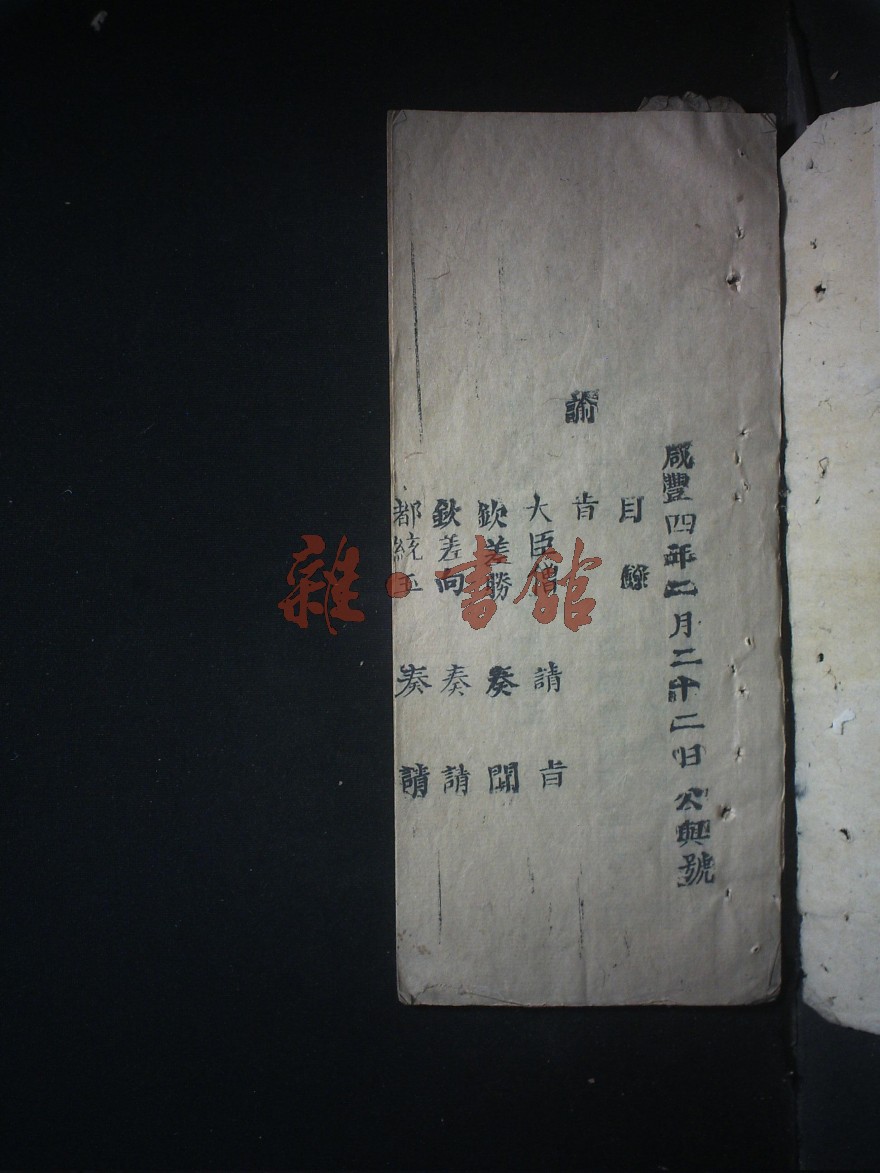 咸豐四年二月二十二日公興號
目錄
諭旨
大臣僧 請旨
欽差勝 奏聞
欽差向 奏請
都統 奏請
雜·書館